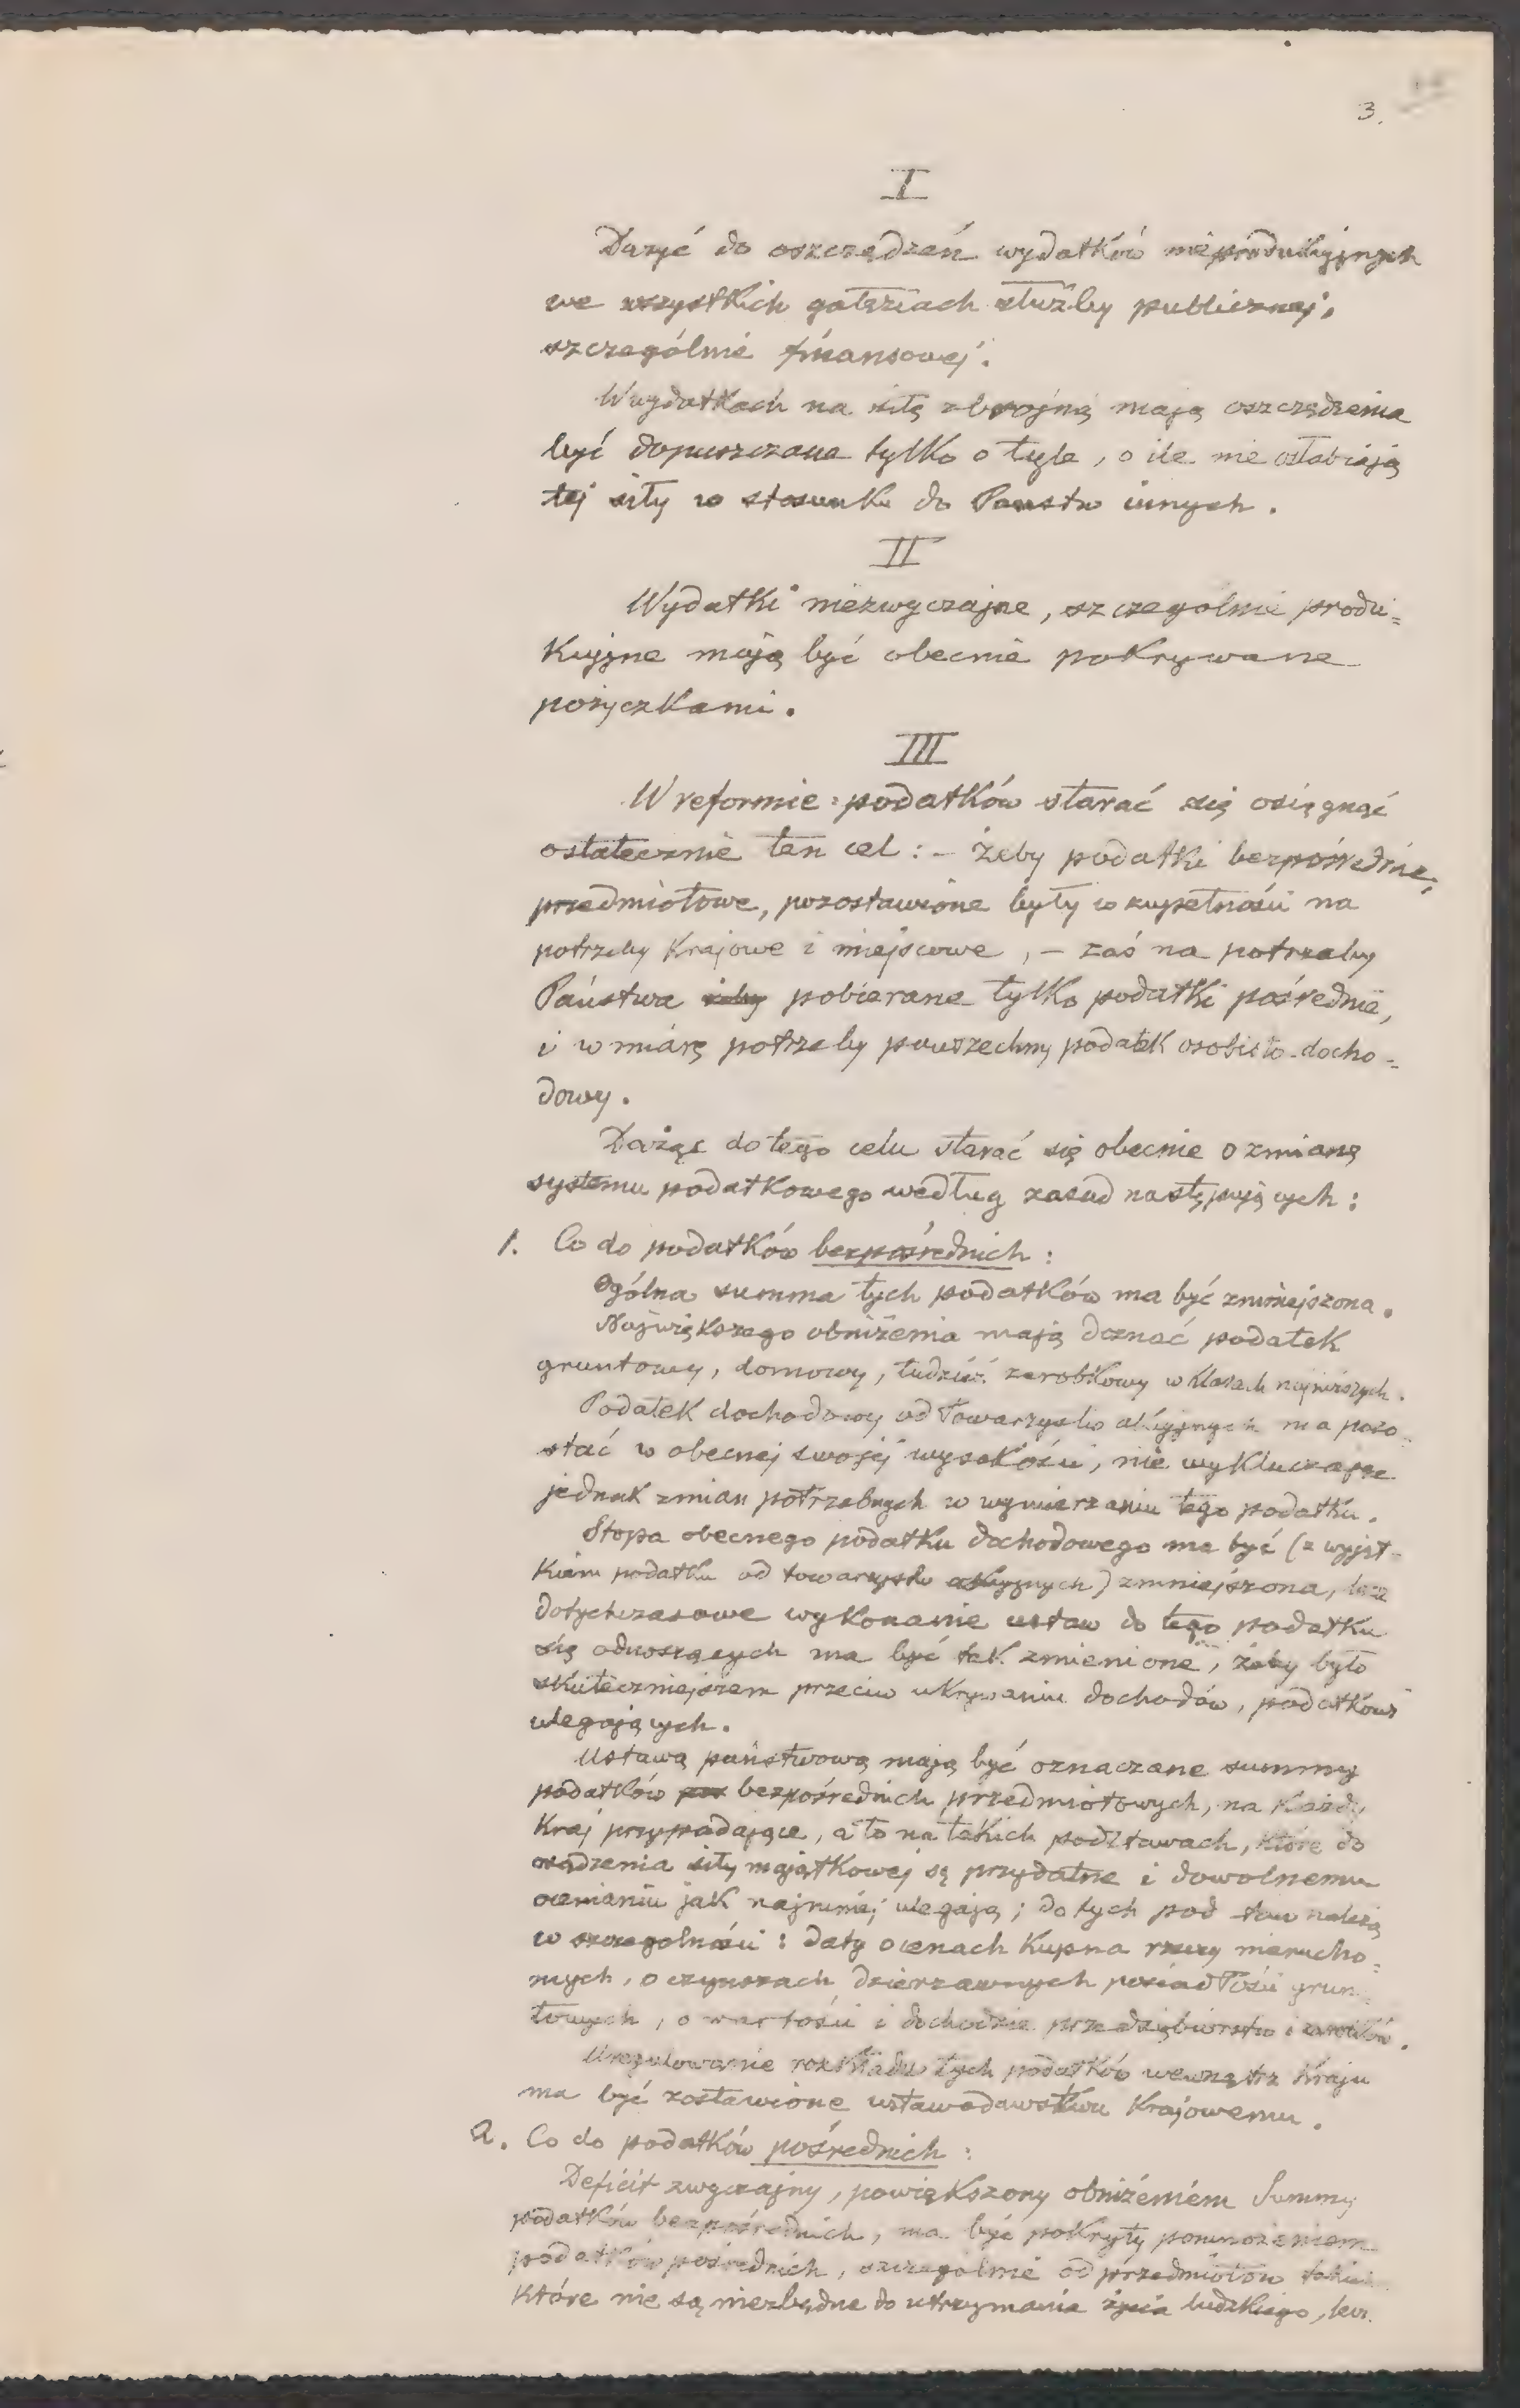 3.
I
Dążyć do oszczędzeń wydatków nieprodukcyjnych
we wszystkich gałęziach służby publicznej,
szczególnie finansowej.
W wydatkach na siłę zbrojną mają oszczędzenia
być dopuszczane tylko o tyle, o ile nie osłabiają
tej siły w stosunku do Państw innych.
II
Wydatki niezwyczajne, szczególnie produ=
kcyjne mają być obecnie pokrywane
pożyczkami.
III
W reformie podatków starać się osięgnąć
ostatecznie ten cel: – żeby podatki bezpośrednie,
przedmiotowe, pozostawione były w zupełności na
potrzeby Krajowe i miejscowe, – zaś na potrzeby
Państwa żeby pobierane tylko podatki pośrednie,
i w miarę potrzeby powszechny podatek osobisto-docho=
dowy.
Dążąc do tego celu starać się obecnie o zmianę
systemu podatkowego według zasad następujących:
1. Co do podatków bezpośrednich:
Ogólna summa tych podatków ma być zmniejszona.
Największego obniżenia mają doznać podatek
gruntowy, domowy, tudzież zarobkowy w klasach najniższych.
Podatek dochodowy od Towarzystw akcyjnych ma pozo-
stać w obecnej swojej wysokości, nie wykluczając
jednak zmian potrzebnych w wymierzaniu tego podatku.
Stopa obecnego podatku dochodowego ma być (z wyjąt-
kiem podatku od towarzystw akcyjnych) zmniejszona, lecz
dotychczasowe wykonanie ustaw do tego podatku
się odnoszących ma być tak zmienione, żeby było
skuteczniejszem przeciw ukrywaniu dochodów, podatkowi
ulegających.
Ustawą państwową mają być oznaczane summy
podatków bezpośrednich przedmiotowych, na każdy
Kraj przypadające, a to na takich podstawach, które do
osądzenia siły majątkowej są przydatne i dowolnemu
ocenianiu jak najmniej ulegają; do tych podstaw należą
w szczególności: daty o cenach kupna rzeczy nierucho=
mych, o czynszach dzierżawnych posiadłości grun=
towych, o wartości i dochodzie przedsiębiorstw i zarobków.
Uregulowanie rozkładu tych podatków wewnątrz Kraju
ma być zostawione ustawodawstwu Krajowemu.
2. Co do podatków pośrednich:
Deficit zwyczajny, powiększony obniżeniem Summy
podatków bezpośrednich, ma być pokryty pomnożeniem
podatków pośrednich, szczególnie od przedmiotów takich
które nie są niezbędne do utrzymania życia ludzkiego, lecz